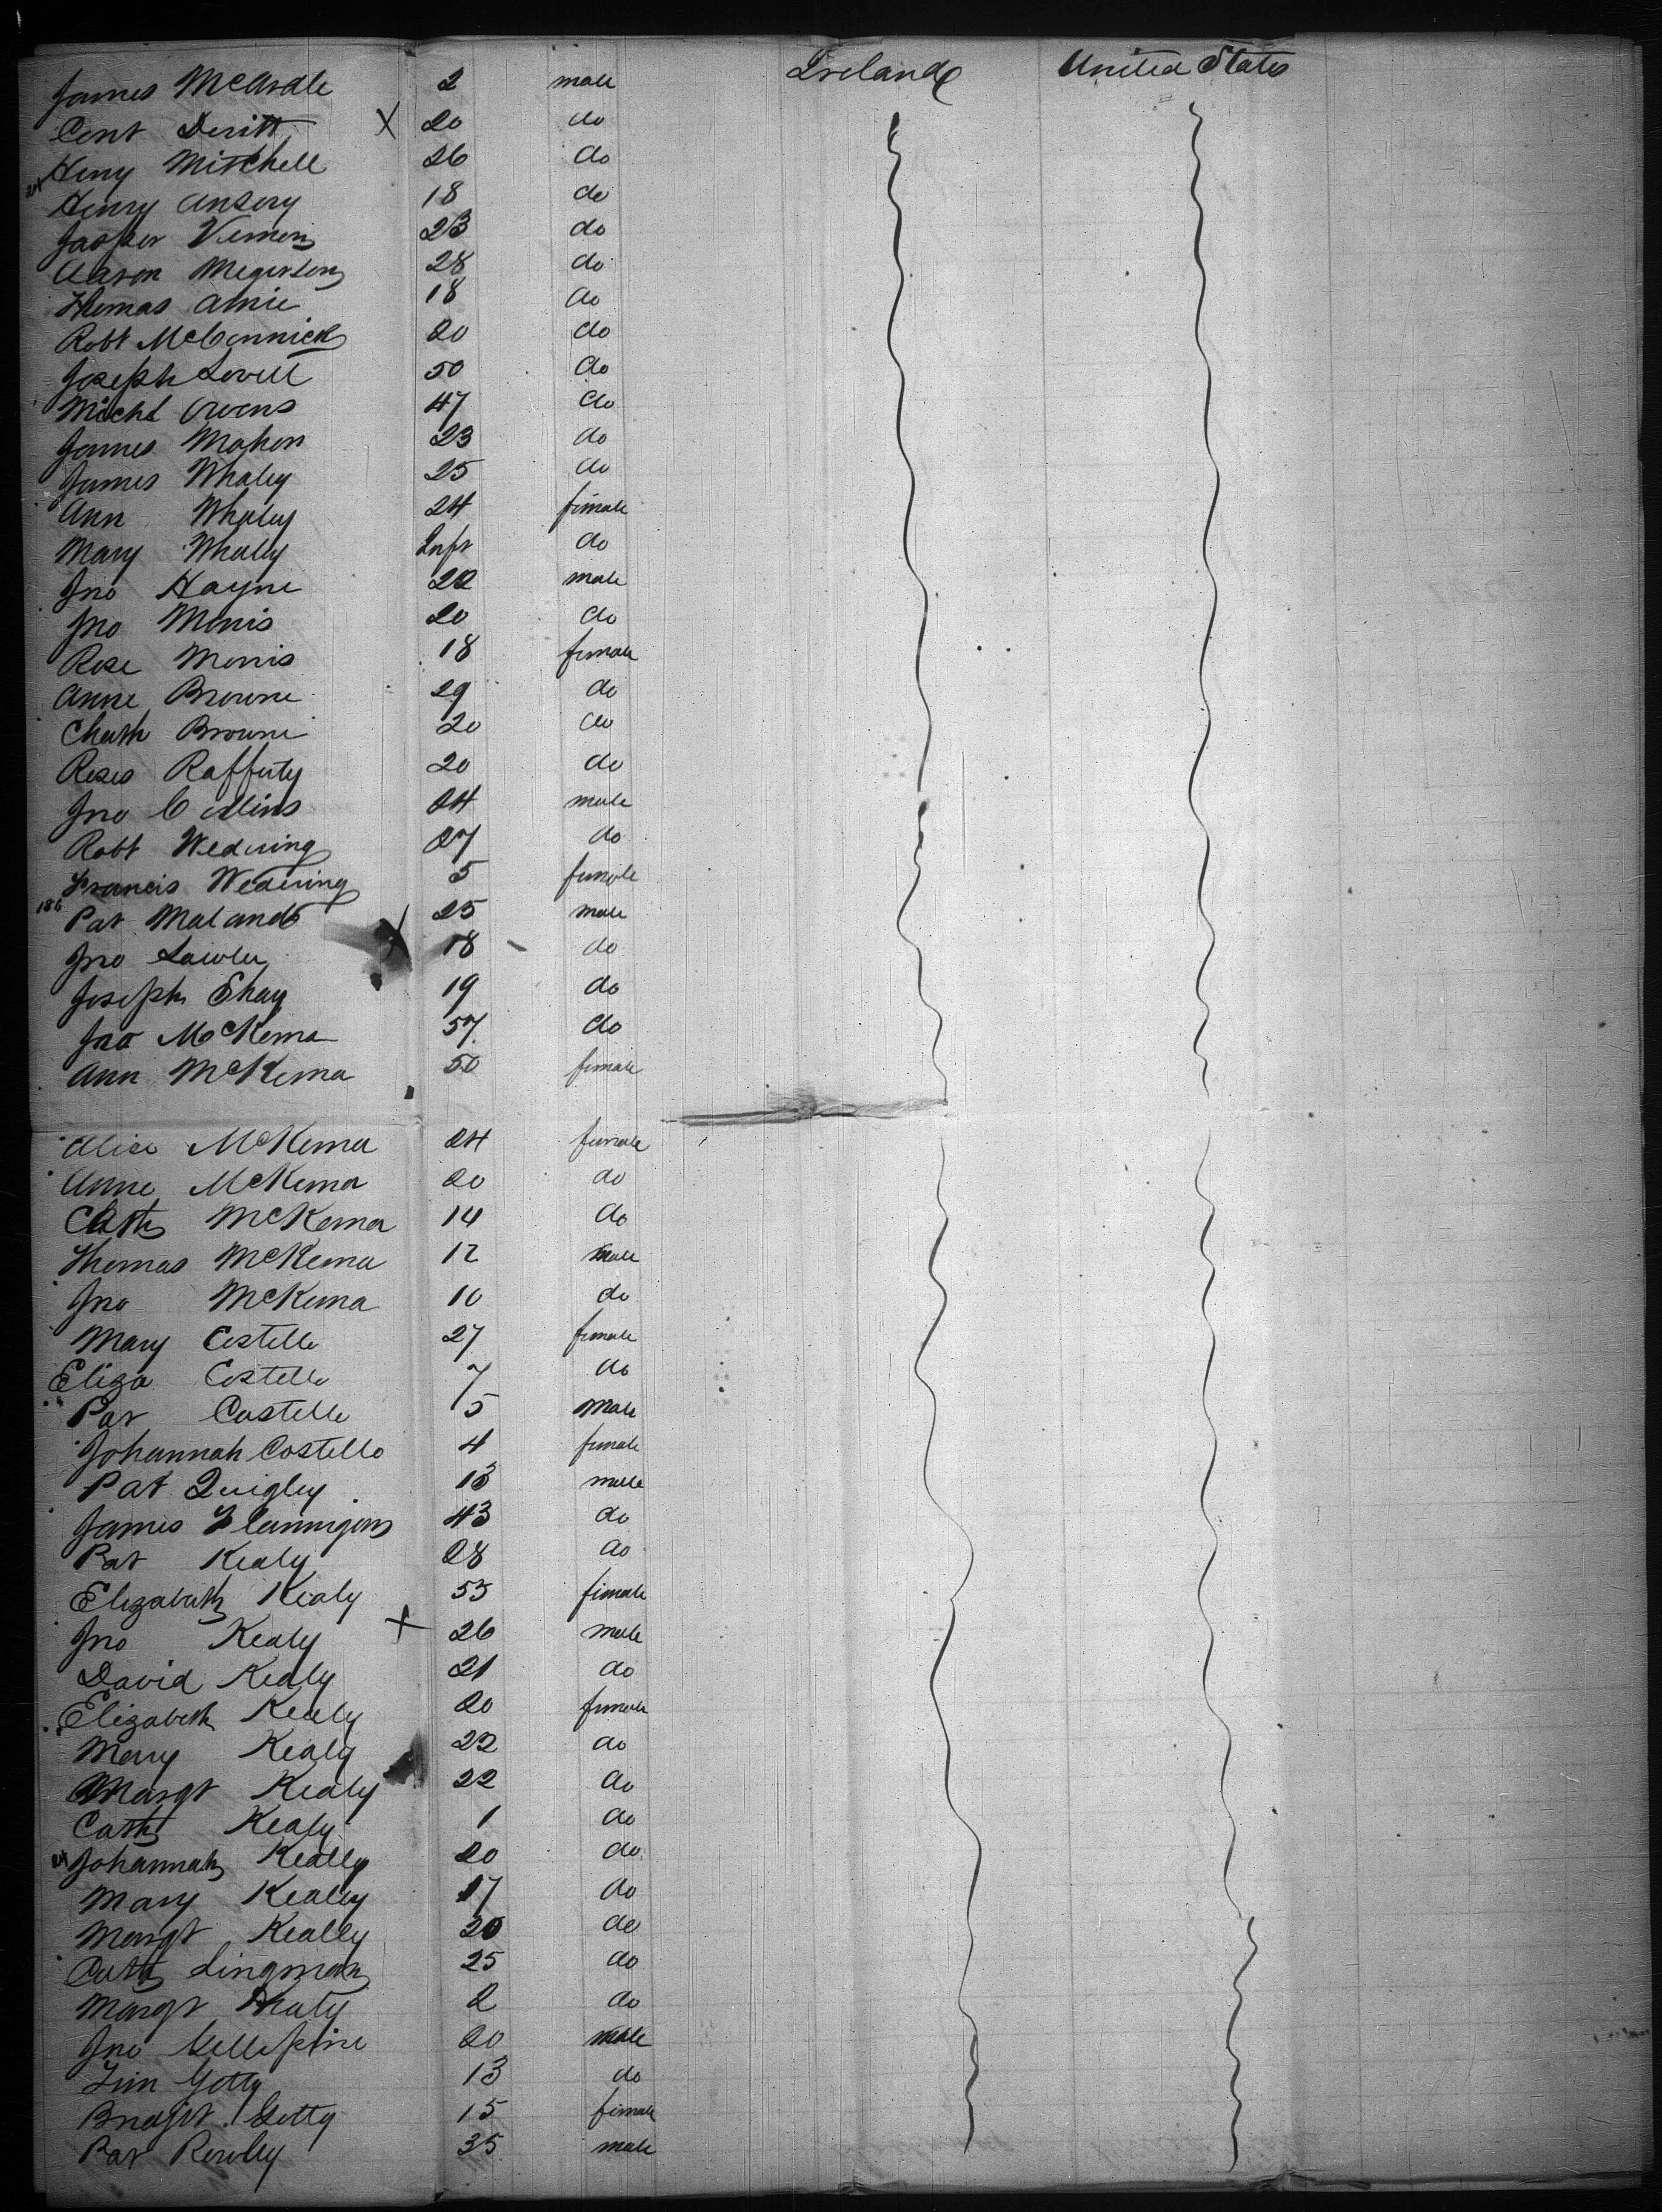 James McArdle 2 male Ireland United States
Cent Deritt X 20 do
Heny Mitchell 26 do
Henry Ansery 18 do
Jasper Vernon 23 do
Aaron Megerson 28 do
Thomas Amie 18 do
Robt McCormick 20 do
Joseph Lovell 50 do
Michl Owens 47 do
James Mahon 23 do
James Whaley 25 do
Ann Whaley 24 female
Mary Whally Inft do
Jno Hayne 22 male
Jno Morris 20 do
Rose Morris 18 female
Anne Browne 29 do
Chath Browne 20 do
Roses Rafferty 20 do
Jno Collins 24 male
Robt Wedering 27 do
Francis Wedering 5 female
186 Pat Maland 25 male
Jno Lawler X 18 do
Joseph Shay 19 do
Jno McKenna 57 do
Ann McKenna 50 female
Alice McKenna 24 female
Anne McKenna 20 do
Cath McKenna 14 do
Thomas McKenna 12 male
Jno McKenna 10 do
Mary Costello 27 female
Eliza Costello 7 do
Pat Costello 5 male
Johannah Costello 4 female
Pat Quigley 13 male
James Flannigan 43 do
Pat Kealy 28 do
Elizabeth Kealy 55 female
Jno Kealy X 26 male
David Kealy 21 do
Elizabeth Kealy 20 female
Mary Kealy 22 do
Margt Kealy 22 do
Cath Kealy 1 do
Johannah Keally 20 do
Mary Kealey 17 do
Margt Keally 20 do
Cath Lingman 25 do
Margt 2 do
Jno Gillespine 20 male
Tim Gotty 13 do
Bridgit Gotty 15 female
Pat Rowley 35 male